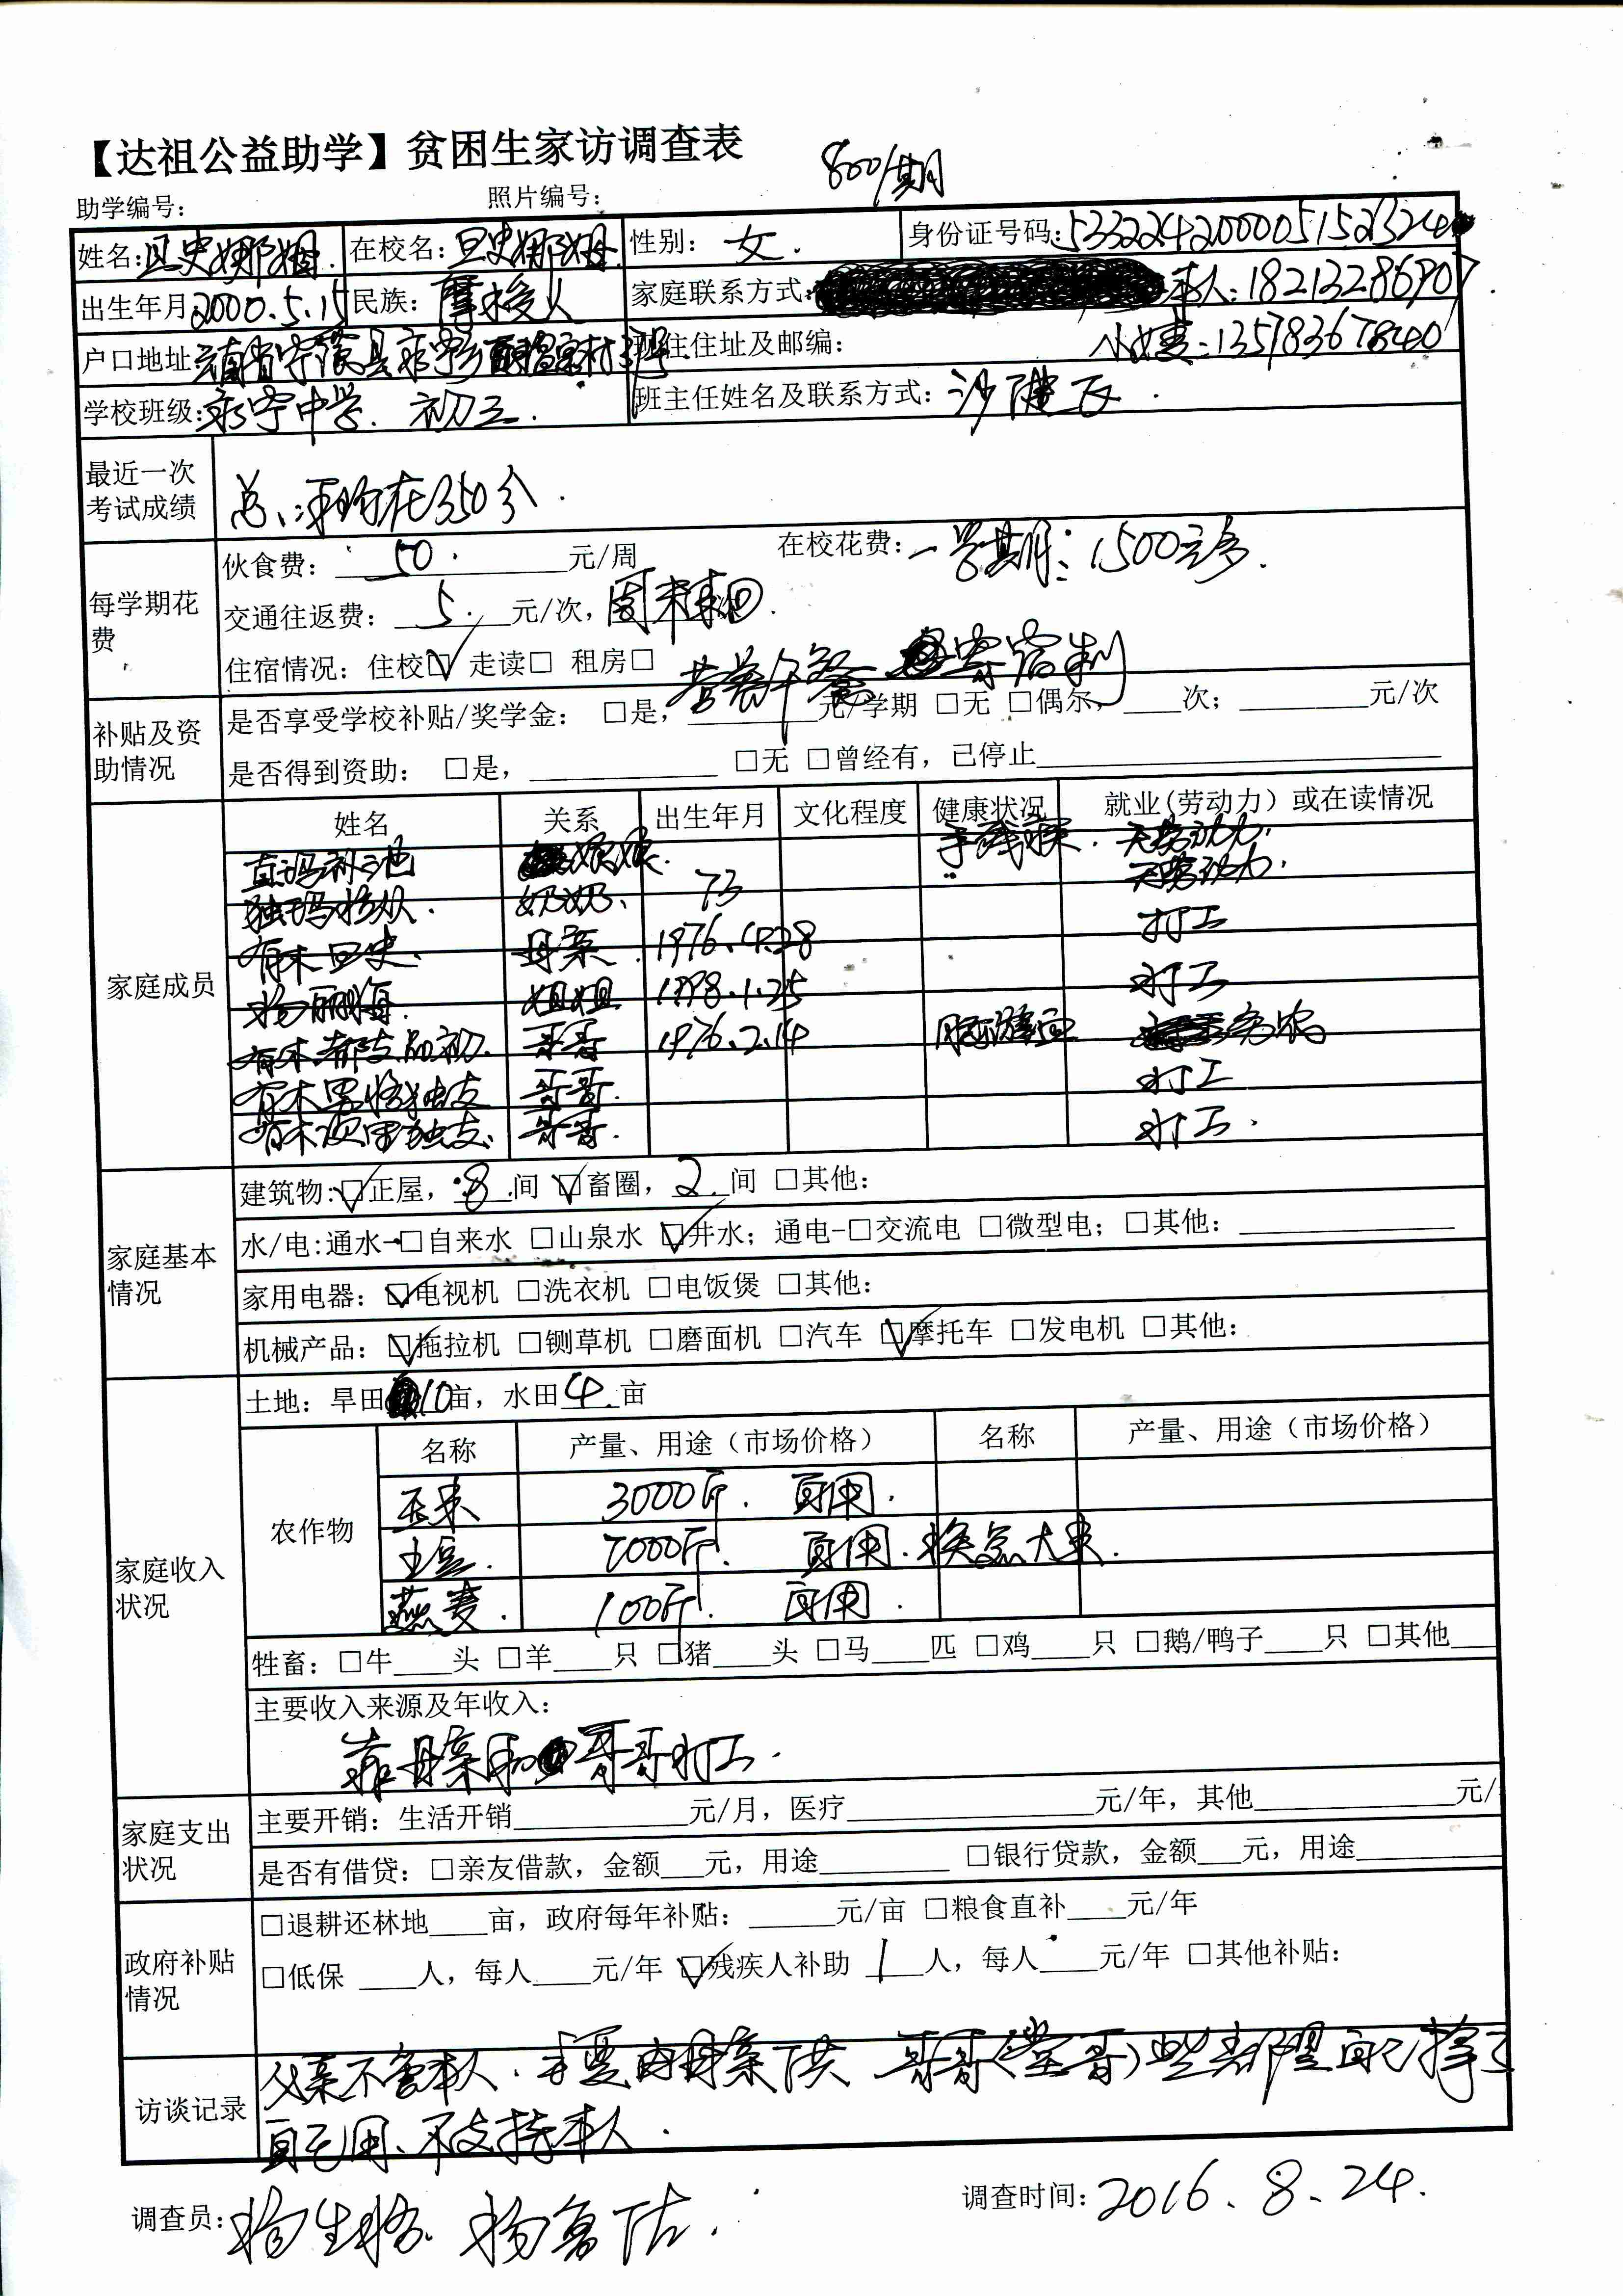 【达祖公益助学】贫困生家访调查表
800/期
助学编号： 照片编号：
姓名：旦史娜姆. 在校名：旦史娜姆. 性别：女. 身份证号码：
出生年月：2000.5.15 民族：摩梭人 家庭联系方式： 本人：18213286907.
户口地址： 现住住址及邮编： 13578367840
学校班级：永宁中学. 初三. 班主任姓名及联系方式：
最近一次考试成绩 总、平均在350分.
每学期花费
伙食费：50.元/周 在校花费：一学期：1500元多.
交通往返费：5.元/次，周末来回.
住宿情况：住校☑ 走读□ 租房□
营养午餐 寄宿制
补贴及资助情况
是否享受学校补贴/奖学金： □是，元/学期 □无 □偶尔，____次；____元/次
是否得到资助： □是，____ □无 □曾经有，已停止____
家庭成员
姓名 关系 出生年月 文化程度 健康状况 就业(劳动力）或在读情况
直玛补池 手残疾. 无劳动力.
奶奶. 73 无劳动力.
母亲. 1976.4.28 打工
杨丽梅 姐姐 1998.1.25 打工
哥哥 1976.2.14 务农
哥哥. 打工
哥哥. 打工.
家庭基本情况
建筑物：☑正屋，8间 ☑畜圈，2间 □其他：
水/电：通水-□自来水 □山泉水 ☑井水；通电-□交流电 □微型电；□其他：____
家用电器：☑电视机 □洗衣机 □电饭煲 □其他：
机械产品：☑拖拉机 □铡草机 □磨面机 □汽车 ☑摩托车 □发电机 □其他：
家庭收入状况
土地：旱田10亩，水田4亩
农作物
名称 产量、用途（市场价格） 名称 产量、用途（市场价格）
玉米 3000斤. 自用.
土豆. 7000斤. 自用.换点大米.
燕麦. 100斤. 自用.
牲畜：□牛____头 □羊____只 □猪____头 □马____匹 □鸡____只 □鹅/鸭子____只 □其他____
主要收入来源及年收入：
靠母亲和哥哥打工.
家庭支出状况
主要开销：生活开销____元/月，医疗____元/年，其他____元/
是否有借贷：□亲友借款，金额___元，用途____ □银行贷款，金额___元，用途____
政府补贴情况
□退耕还林地____亩，政府每年补贴：____元/亩 □粮食直补____元/年
□低保 ____人，每人____元/年 ☑残疾人补助 1人，每人____元/年 □其他补贴：
访谈记录
父亲不管本人.主要由母亲供 哥哥(堂哥)些都是自己拿了
自己用、不支持本人.
调查员： 调查时间：2016.8.24.